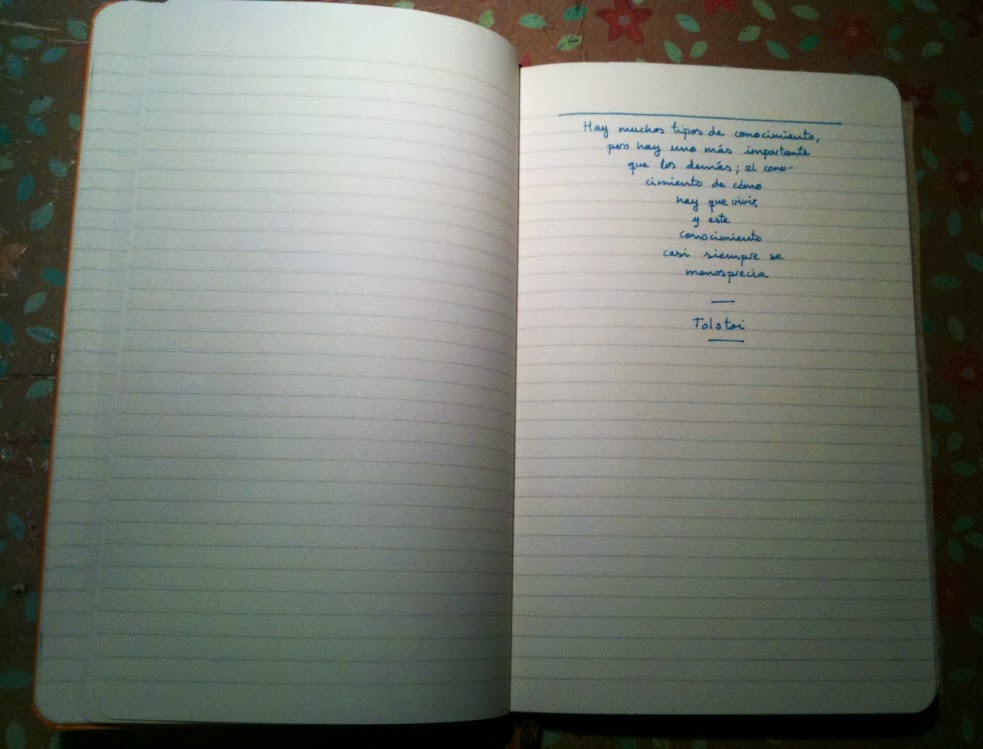 Hay muchos tipos de conocimiento,
pero hay uno más importante
que los demás; el cono-
cimiento de cómo
hay que vivir,
y este
conocimiento
casi siempre se
menosprecia
—
Tolstoi